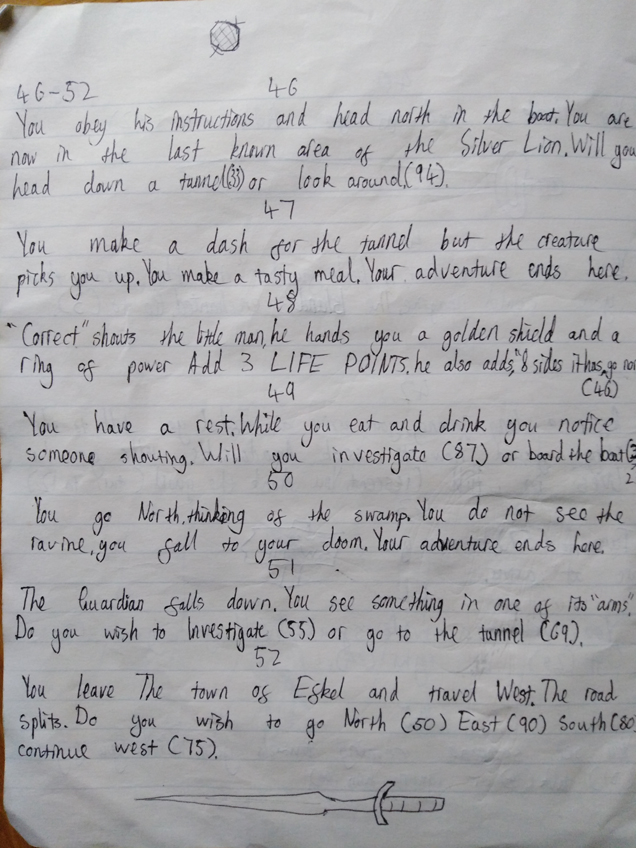 46-52
46
You obey his instructions and head north in the boat. You are
now in the last known area of the Silver Lion. Will you
head down a tunnel (33) or look around (94).
47
You make a dash for the tunnel but the creature
picks you up. You make a tasty meal. Your adventure ends here.
48
"Correct" shouts the little man, he hands you a golden shield and a
ring of power Add 3 LIFE POINTS. he also adds, "8 sides it has, go
(46)
49
You have a rest. While you eat and drink you notice
someone shouting. Will you investigate (87) or board the boat
50
You go North, thinking of the swamp. You do not see the
ravine, you fall to your doom. Your adventure ends here.
51
The Guardian falls down. You see something in one of its "arms".
Do you wish to Investigate (55) or go to the tunnel (69).
52
You leave The town of Eskel and travel West. The road
splits. Do you wish to go North (50) East (90) South (80)
continue west (75).